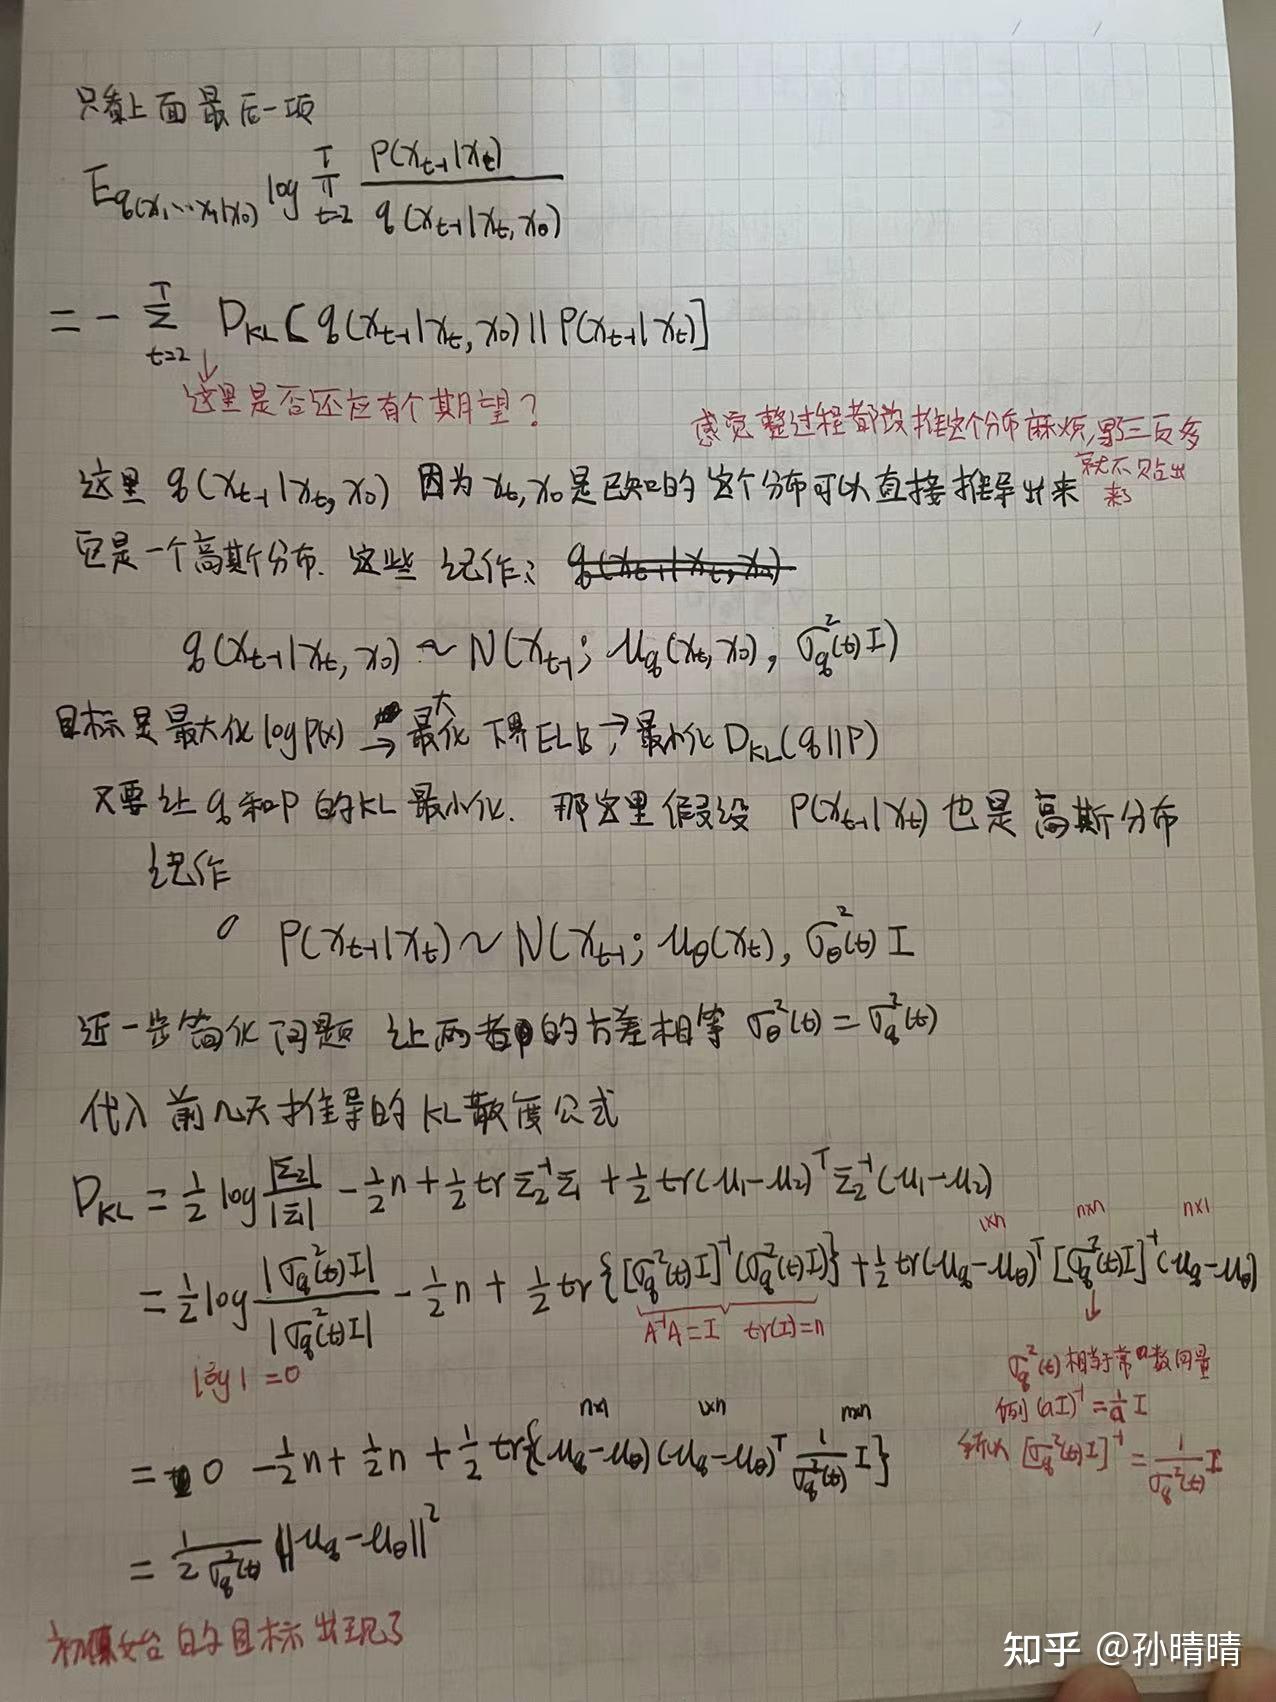 只看上面最后一项
E_{q(x_1…x_T|x_0)} log ∏_{t=2}^{T} P(x_{t-1}|x_t) / q(x_{t-1}|x_t, x_0)
= - ∑_{t=2}^{T} D_{KL}[q(x_{t-1}|x_t, x_0)||P(x_{t-1}|x_t)]
这里是否还应有个期望?
感觉整过程都没推这个分布麻烦,
就不贴出
来了
这里 q(x_{t-1}|x_t, x_0) 因为 x_t, x_0 是已知的 这个分布可以直接推导出来
它是一个高斯分布. 这些 记作:
q(x_{t-1}|x_t, x_0) ~ N(x_{t-1}; μ_q(x_t, x_0), σ_q^2(t)I)
目标是最大化 log P(x) → 最大化 下界ELB, → 最小化 D_{KL}(q||P)
只要让 q 和 P 的 KL 最小化. 那这里假设 P(x_{t-1}|x_t) 也是高斯分布
记作
P(x_{t-1}|x_t) ~ N(x_{t-1}; μ_θ(x_t), σ_θ^2(t)I
近一步简化问题 让两者的方差相等 σ_θ^2(t) = σ_q^2(t)
代入前几天推导的 KL 散度公式
D_{KL} = 1/2 log |Σ_2|/|Σ_1| - 1/2 n + 1/2 tr Σ_2^{-1} Σ_1 + 1/2 tr(μ_1-μ_2)^T Σ_2^{-1} (μ_1-μ_2)
1×n n×n n×1
= 1/2 log |σ_q^2(t)I|/|σ_q^2(t)I| - 1/2 n + 1/2 tr{[σ_q^2(t)I]^{-1}(σ_q^2(t)I)} + 1/2 tr(μ_q-μ_θ)^T [σ_q^2(t)I]^{-1} (μ_q-μ_θ)
A^{-1}A = I tr(I) = n
log 1 = 0
σ_q^2(t) 相当于常数向量
例 (aI)^{-1} = 1/a I
所以 [σ_q^2(t)I]^{-1} = 1/σ_q^2(t) I
n×1 1×n n×n
= 0 - 1/2 n + 1/2 n + 1/2 tr{(μ_q-μ_θ)(μ_q-μ_θ)^T 1/σ_q^2(t) I}
= 1/2σ_q^2(t) ||μ_q-μ_θ||^2
初始的目标出现了
知乎 @孙晴晴